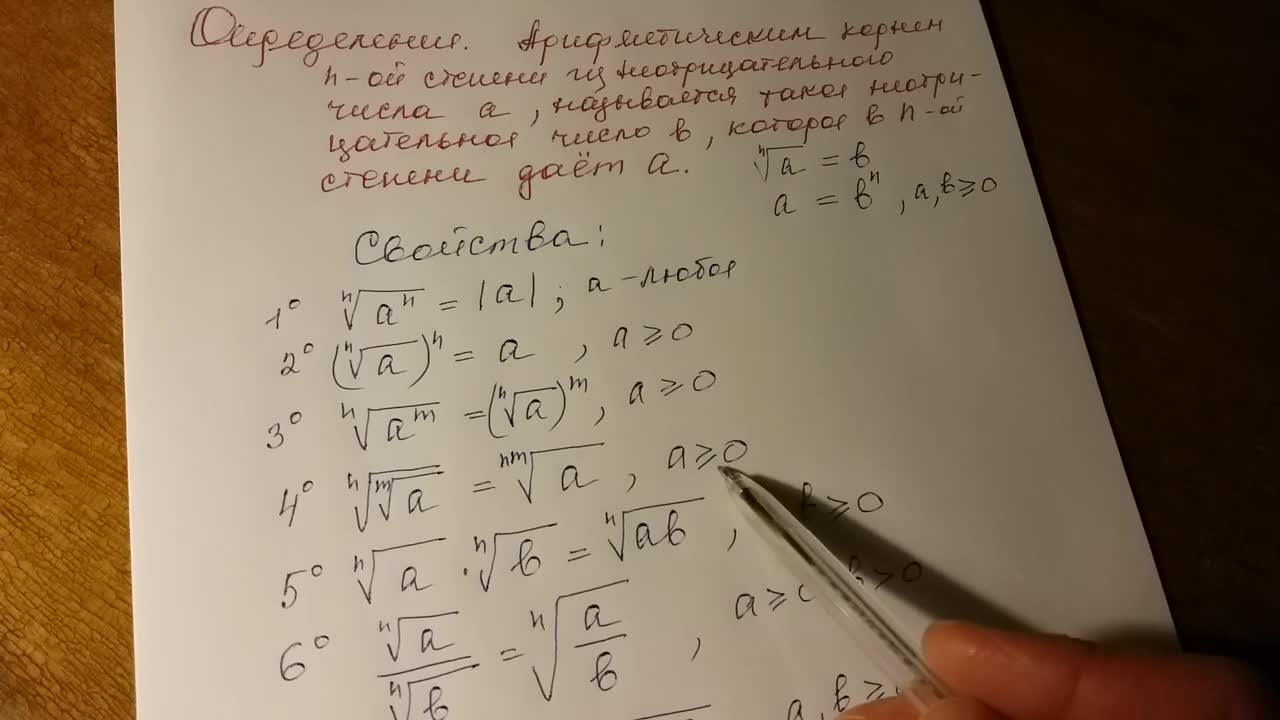 Определения. Арифметическим корнем
n-ой степени из неотрицательного
числа a, называется такое неотри-
цательное число в, которое в n-ой
степени даёт a. ⁿ√a = в
a = вⁿ, a, в ≥ 0
Свойства:
1° ⁿ√(aⁿ) = |a|; a - любое
2° (ⁿ√a)ⁿ = a, a ≥ 0
3° ⁿ√(aᵐ) = (ⁿ√a)ᵐ, a ≥ 0
4° ⁿ√(ᵐ√a) = ⁿᵐ√a, a ≥ 0
5° ⁿ√a · ⁿ√в = ⁿ√(aв), в ≥ 0
6° ⁿ√a / ⁿ√в = ⁿ√(a/в), a ≥ в > 0
a, в ≥